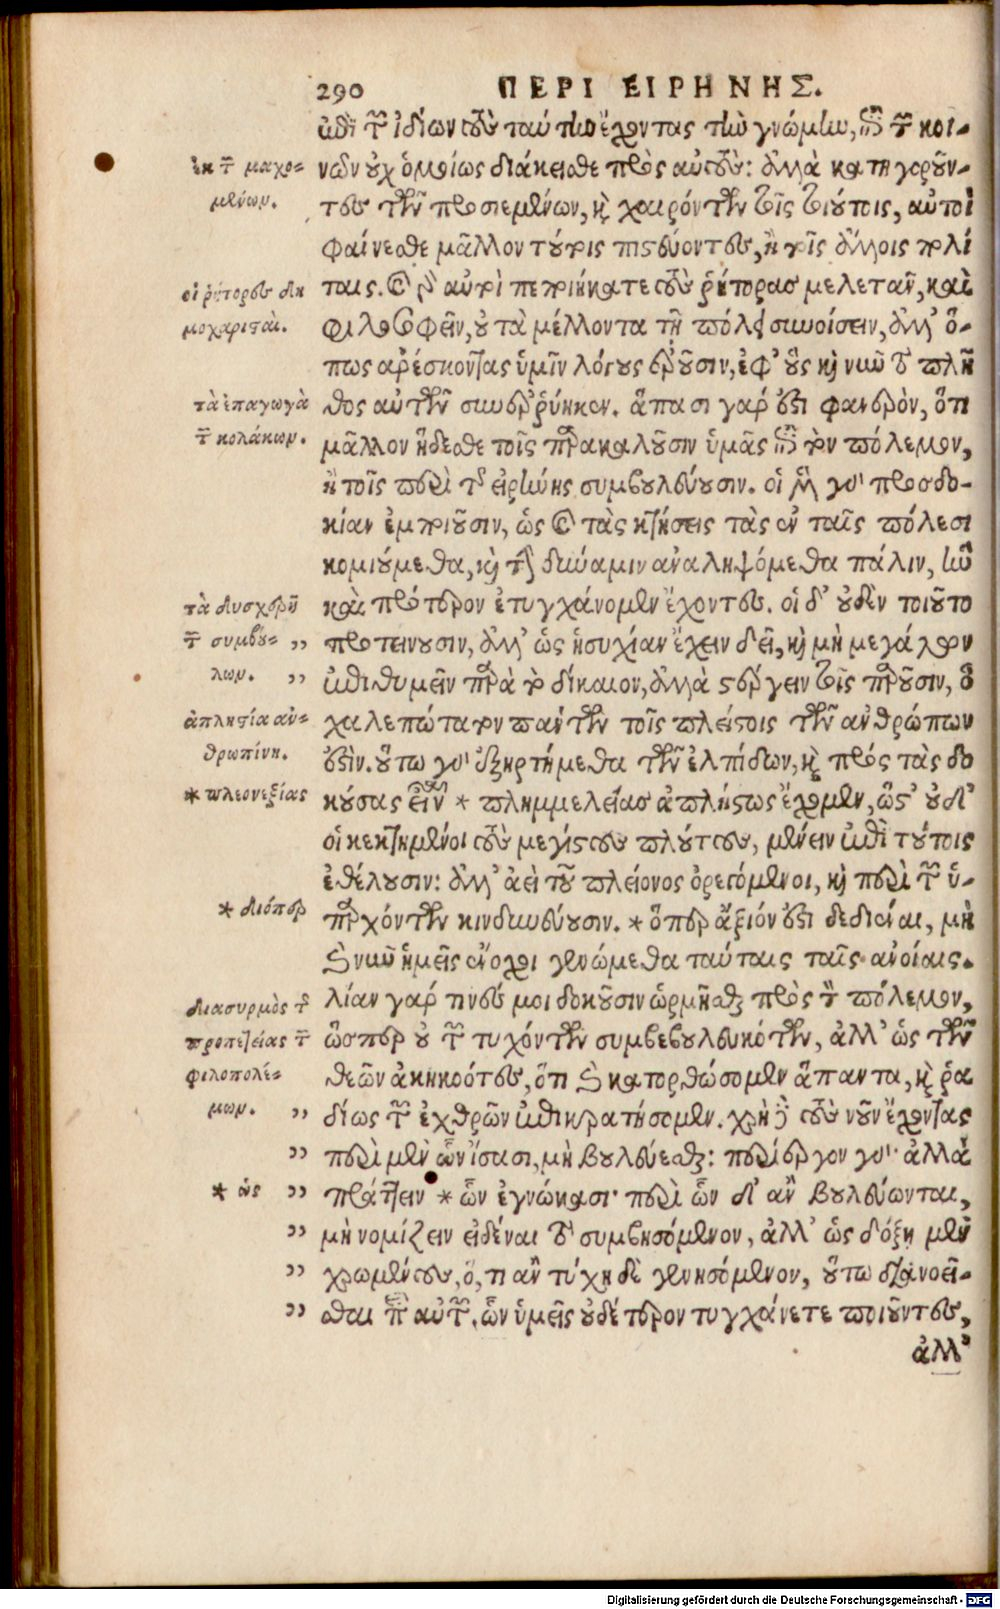 290 ΠΕΡΙ ΕΙΡΗΝΗΣ.
ἐπὶ τῶν ἰδίων τοὺς ταύτην ἔχοντας τὴν γνώμην, ἐπὶ τῶν κοι-
νῶν οὐχ ὁμοίως διάκεισθε πρὸς αὐτούς: ἀλλὰ κατηγοροῦν-
τες τῶν προσιεμένων, καὶ χαιρόντων τοῖς τοιούτοις, αὐτοὶ
φαίνεσθε μᾶλλον τούτοις πιστεύοντες, ἢ τοῖς ἄλλοις πολί
ταις. καὶ γὰρ αὐτοὶ πεποιήκατε τοὺς ῥήτορας μελετᾶν, καὶ
φιλοσοφεῖν, οὐ τὰ μέλλοντα τῇ πόλει συνοίσειν, ἀλλ' ὅ-
πως ἀρέσκοντας ὑμῖν λόγους ἐροῦσιν, ἐφ' οὓς καὶ νῦν τὸ πλῆ
θος αὐτῶν συνερρύηκεν. ἅπασι γάρ ἐστι φανερὸν, ὅτι
μᾶλλον ἥδεσθε τοῖς παρακαλοῦσιν ὑμᾶς ἐπὶ τὸν πόλεμον,
ἢ τοῖς περὶ τῆς εἰρήνης συμβουλεύουσιν. οἱ μὲν γὰρ προσδο-
κίαν ἐμποιοῦσιν, ὡς καὶ τὰς κτήσεις τὰς ἐν ταῖς πόλεσι
κομιούμεθα, καὶ τὴν δύναμιν ἀναληψόμεθα πάλιν, ἣν
καὶ πρότερον ἐτυγχάνομεν ἔχοντες. οἱ δ' οὐδὲν τοιοῦτο
προτείνουσιν, ἀλλ' ὡς ἡσυχίαν ἔχειν δεῖ, καὶ μὴ μεγάλων
ἐπιθυμεῖν παρὰ τὸ δίκαιον, ἀλλὰ στέργειν τοῖς παροῦσιν, ὃ
χαλεπώτατον πάντων τοῖς πλείστοις τῶν ἀνθρώπων
ἐστίν. οὕτω γὰρ ἐξηρτήμεθα τῶν ἐλπίδων, καὶ πρὸς τὰς δο
κούσας εἶναι * πλημμελείας ἀπλήστως ἔχομεν, ὥστ' οὐδ'
οἱ κεκτημένοι τοὺς μεγίστους πλούτους, μένειν ἐπὶ τούτοις
ἐθέλουσιν: ἀλλ' ἀεὶ τοῦ πλείονος ὀρεγόμενοι, καὶ περὶ τῶν ὑ-
παρχόντων κινδυνεύουσιν. * ὅπερ ἄξιόν ἐστι δεδιέναι, μὴ
καὶ νῦν ἡμεῖς ἔνοχοι γενώμεθα ταύταις ταῖς ἀνοίαις.
λίαν γάρ τινές μοι δοκοῦσιν ὡρμῆσθαι πρὸς τὸν πόλεμον,
ὥσπερ οὐ τῶν τυχόντων συμβεβουλευκότων, ἀλλ' ὡς τῶν
θεῶν ἀκηκοότες, ὅτι καὶ κατορθώσομεν ἅπαντα, καὶ ῥᾳ
δίως τῶν ἐχθρῶν ἐπικρατήσομεν. χρὴ δὲ τοὺς νοῦν ἔχοντας
περὶ μὲν ὧν ἴσασι, μὴ βουλεύεσθαι: περίεργον γάρ· ἀλλὰ
πράττειν * ὧν ἐγνώκασι· περὶ ὧν δ' ἂν βουλεύωνται,
μὴ νομίζειν εἰδέναι τὸ συμβησόμενον, ἀλλ' ὡς δόξῃ μὲν
χρωμένους, ὅ,τι ἂν τύχῃ δὲ γενησόμενον, οὕτω διανοεῖ-
σθαι περὶ αὐτῶν. ὧν ὑμεῖς οὐδέτερον τυγχάνετε ποιοῦντες,
ἀλλ'
ἐκ τῶν μαχο-
μένων.
οἱ ῥήτορες δη
μοχαρισταί.
τὰ ἐπαγωγὰ
τῶν κολάκων.
τὰ δυσχερῆ
τῶν συμβού- „
λων. „
ἀπληστία ἀν-
θρωπίνη.
* πλεονεξίας
* διόπερ
διασυρμὸς τῆς
προπετείας τῶν
φιλοπολέ-
μων. „
„
* ὡς „
„
„
„
Digitalisierung gefördert durch die Deutsche Forschungsgemeinschaft - DFG